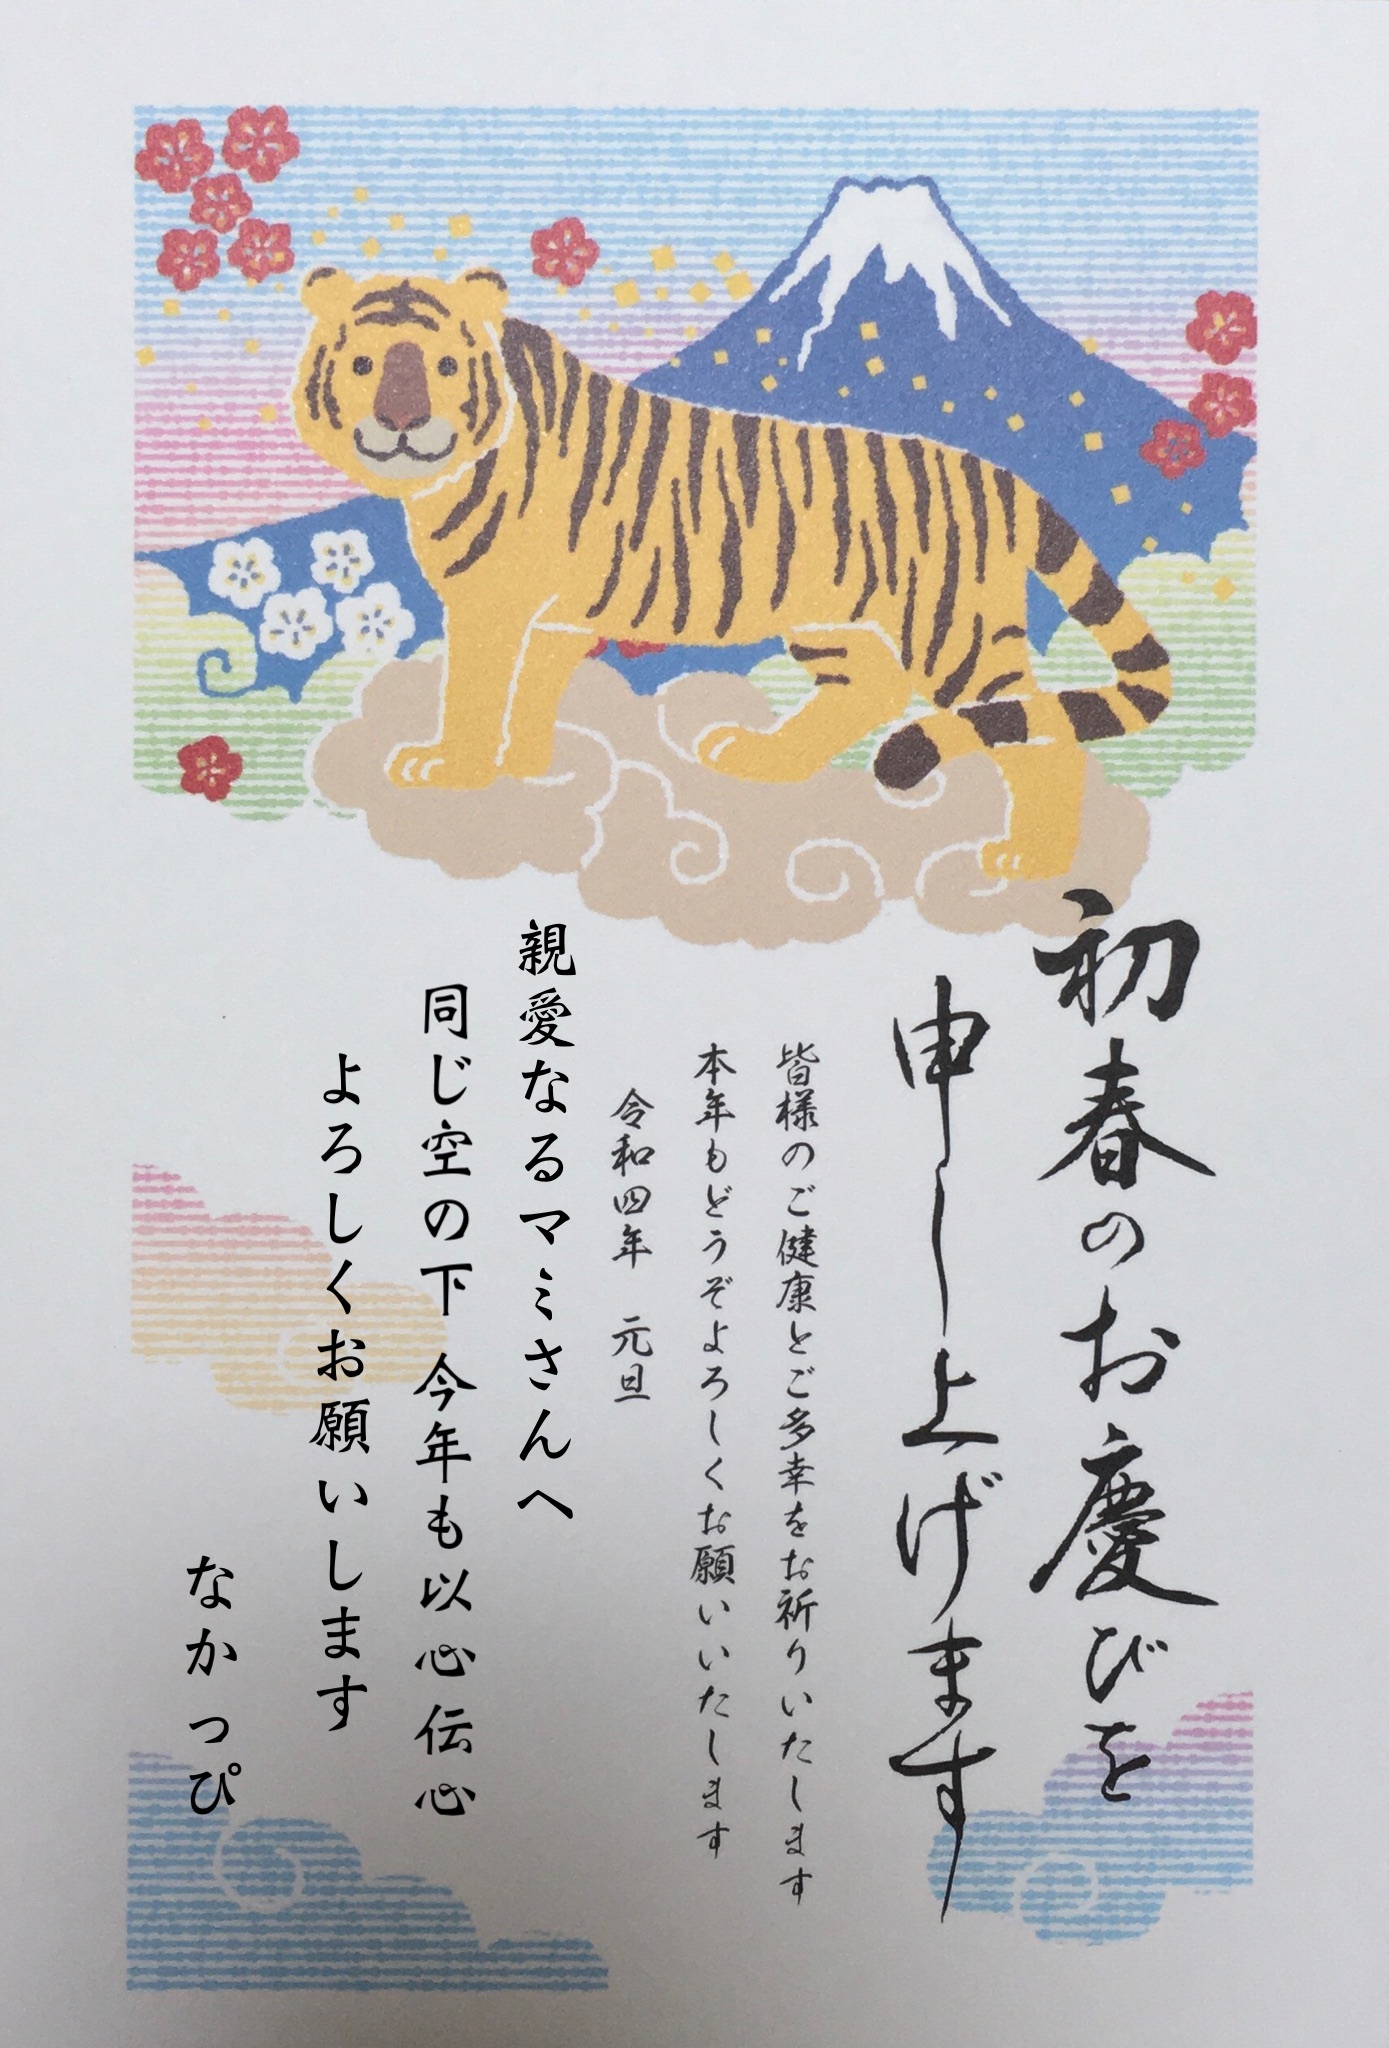 初春のお慶びを
申し上げます
皆様のご健康とご多幸をお祈りいたします
本年もどうぞよろしくお願いいたします
令和四年　元旦
親愛なるマミさんへ
同じ空の下 今年も以心伝心
よろしくお願いします
なかっぴ